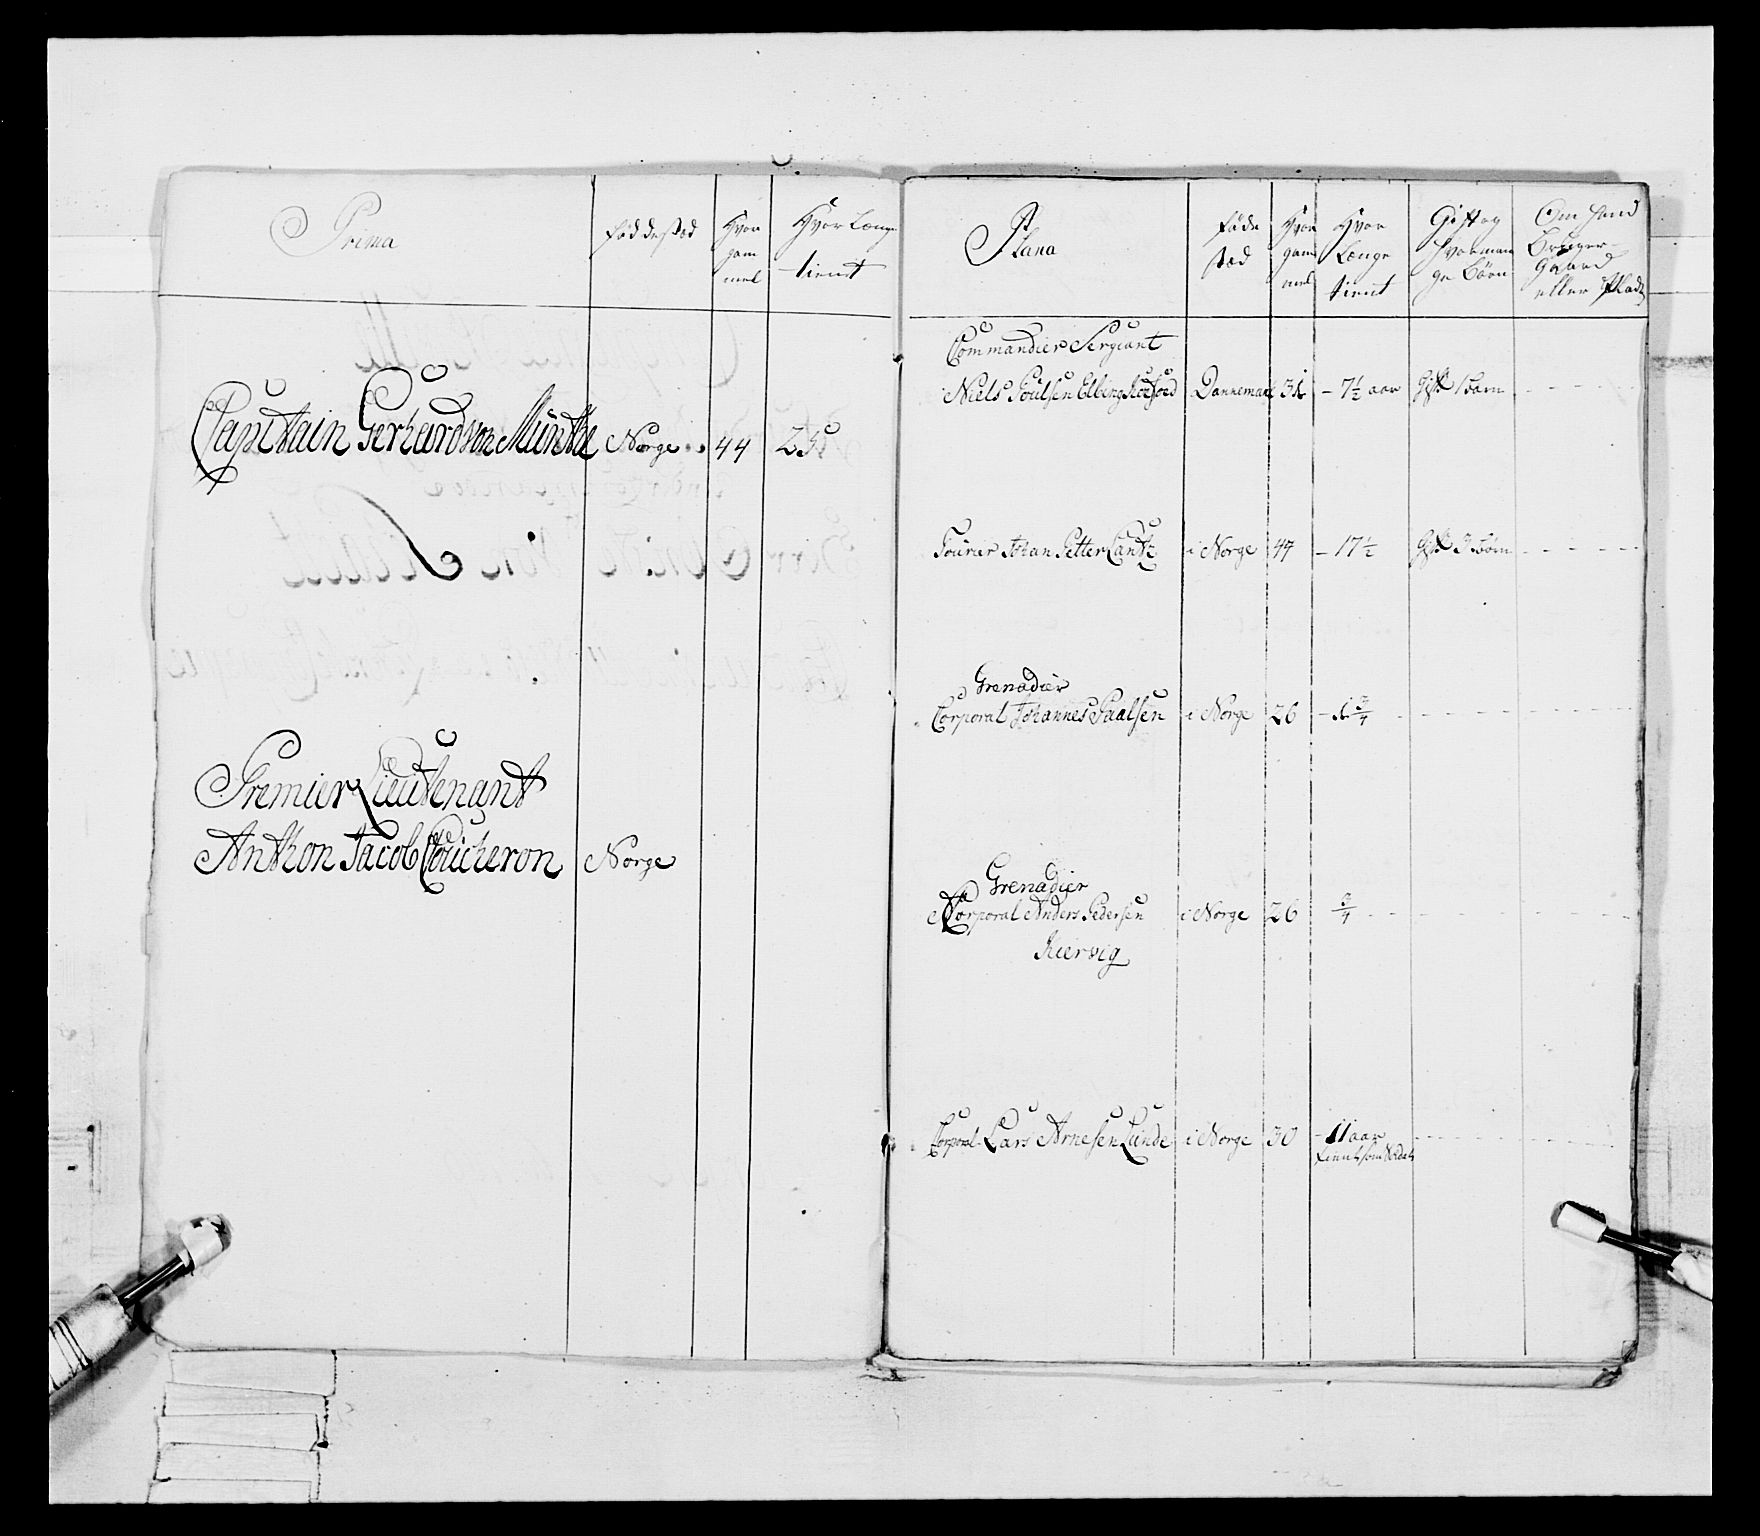 Prima
Føddestæd
Hvor
gam
mel
Hvor Længe
tient
Capitain Gerhard von Munthe Norge 44 25
Premier Lieutenant
Anthon Jacob Coucheron Norge
Plana
Føde
stæd
Hvor
gam
mel
Hvor
Længe
tient
Gift og
hvorman
ge Börn
Om hand
Bruger
Gaard
eller Plads
Commandier Sergiant
Niels Poulsen Dannemark - 7½ aar Gift 1 barn
Fourier Johan Petter Lantz i Norge 47 - 17½ Gift 3 Börn
Grenadier
Corporal Johannes Paalsen i Norge 26
Grenadier
Corporal Anders Pedersen i Norge 26 ¾
Kiervig
Corporal Lars Arnesen Lunde i Norge 30 - 11 aar
tient som Soldat